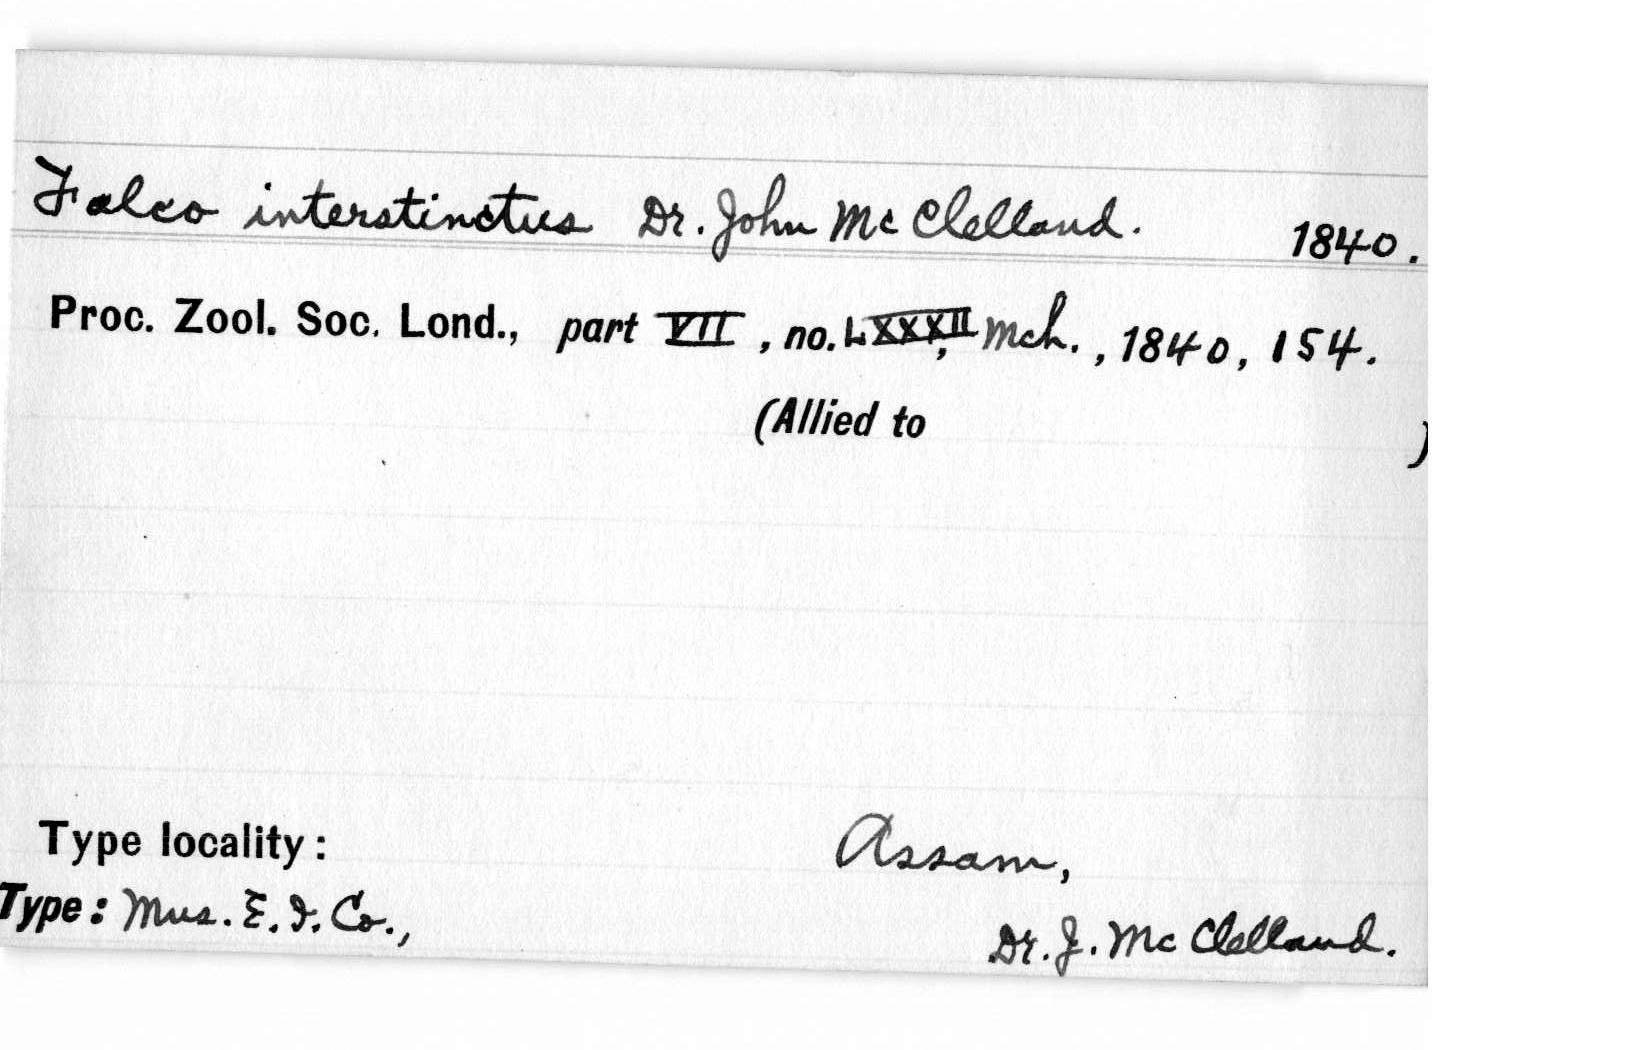 Falco interstinctus Dr. John McClelland. 1840.
Proc. Zool. Soc. Lond., part VII, no. LXXXII, Mch., 1840, 154.
(Allied to )
Type locality: Assam,
Type: Mus. E. I. Co.,
Dr. J. McClelland.